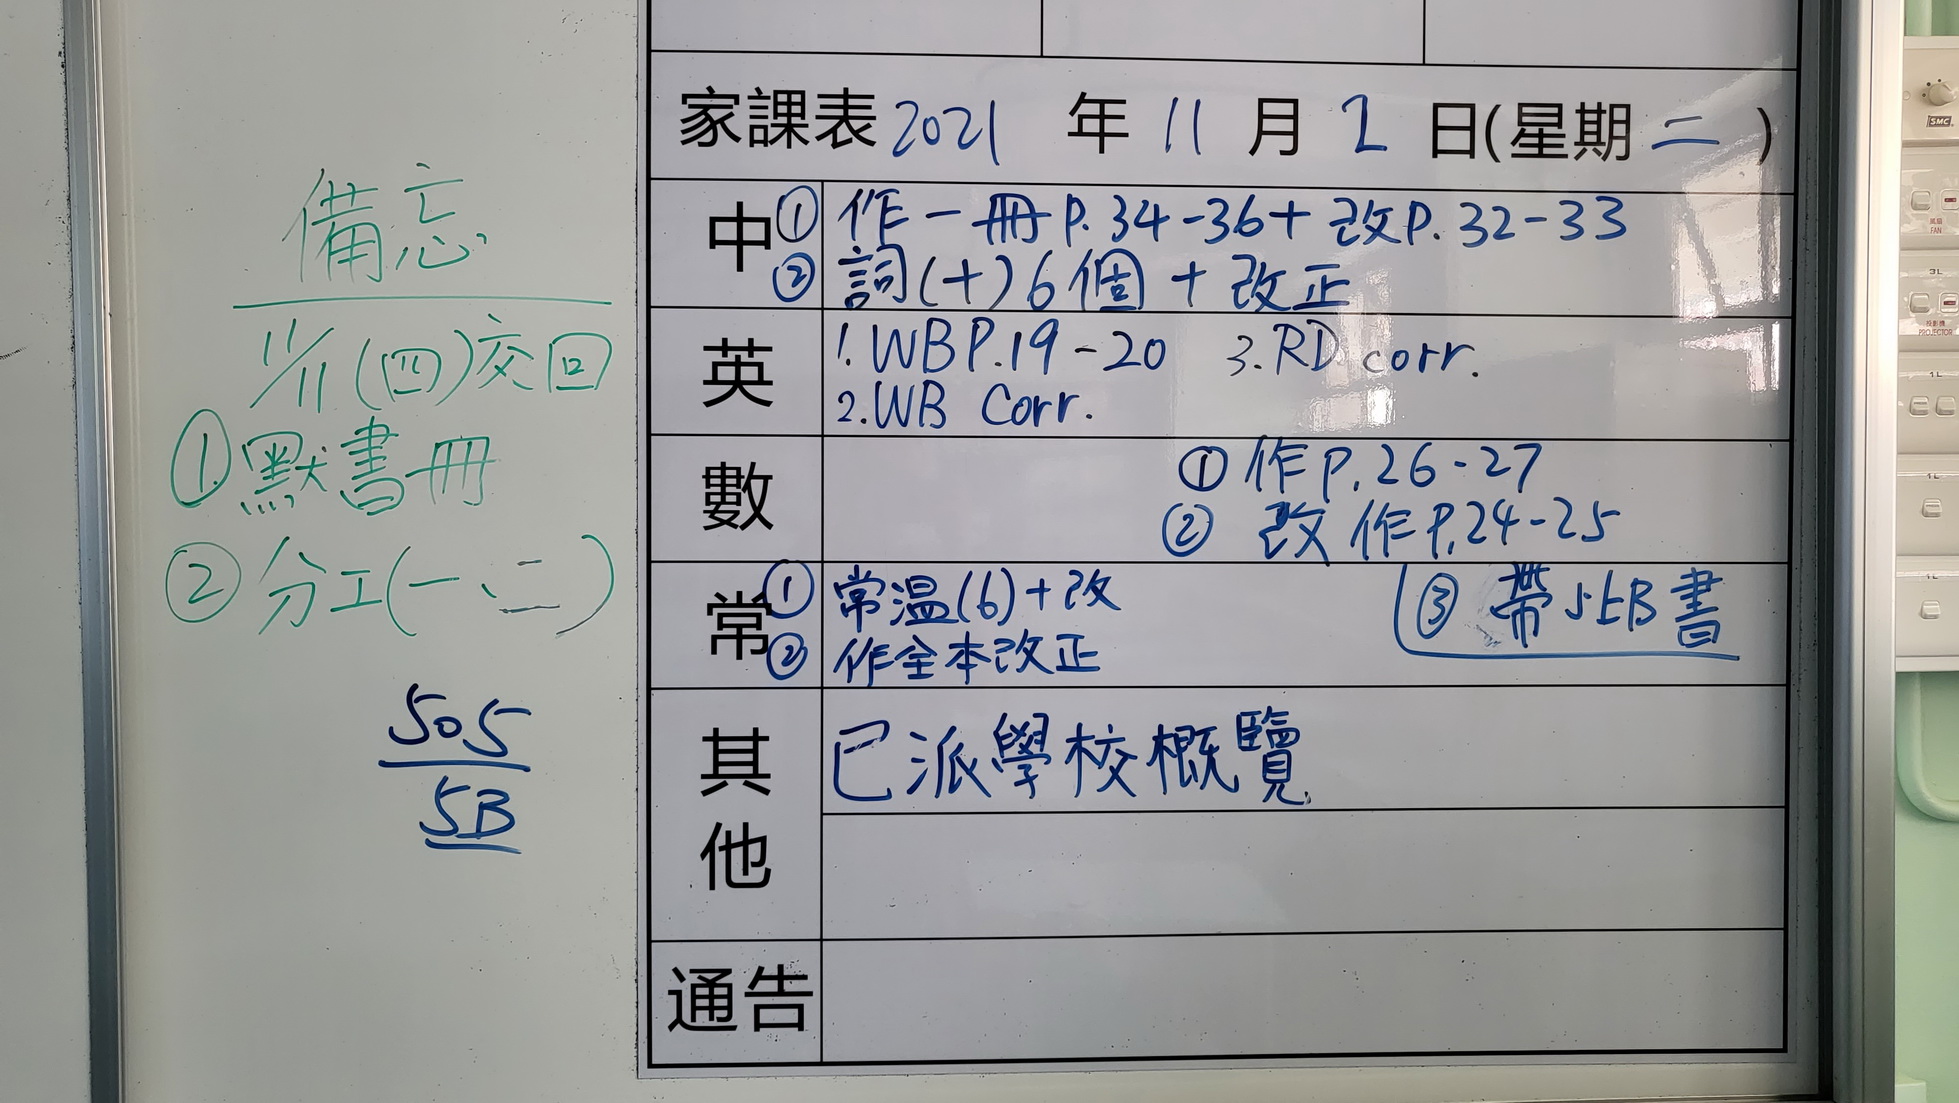 備忘
11/11(四)交回
①默書冊
②分工(一、二)
505
5B
家課表 2021 年 11 月 2 日(星期二)
中
①作一冊P.34-36+改P.32-33
②詞(十)6個+改正
英
1.WBP.19-20 3.RD corr.
2.WB Corr.
數
①作P.26-27
②改作P.24-25
③帶5上B書
常
①常温(6)+改
②作全本改正
其他
已派學校概覽
通告
SMC
風扇
FAN
3L
投影機
PROJECTOR
1L
1L
1L